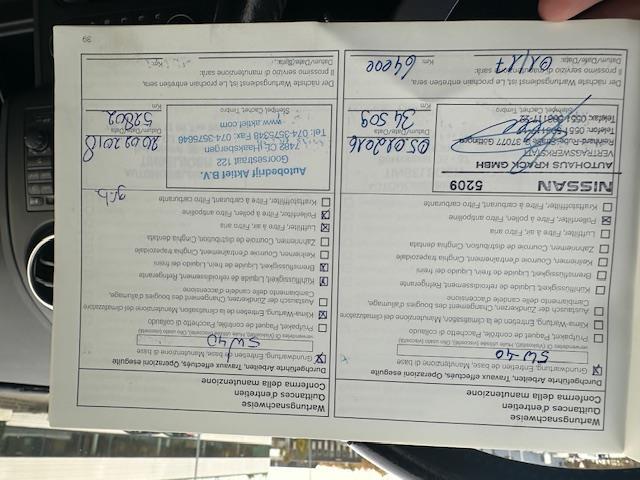 Wartungsnachweise
Quittances d'entretien
Conferma della manutenzione
Durchgeführte Arbeiten, Travaux effectués, Operazioni eseguite
Grundwartung, Entretien de base, Manutenzione di base
5W-40
Prüfpaket, Paquet de contrôle, Pacchetto di collaudo
Klima-Wartung, Entretien de la climatisation, Manutenzione del climatizzatore
Austausch der Zündkerzen, Changement des bougies d'allumage,
Cambiamento delle candele d'accensione
Kühlflüssigkeit, Liquide de refroidissement, Refrigerante
Bremsflüssigkeit, Liquide de frein, Liquido dei freni
Keilriemen, Courroie d'entraînement, Cinghia trapezoidale
Zahnriemen, Courroie de distribution, Cinghia dentata
Luftfilter, Filtre à air, Filtro aria
Pollenfilter, Filtre à pollen, Filtro antipolline
Kraftstofffilter, Filtre à carburant, Filtro carburante
NISSAN 5209
AUTOHAUS KRACK GMBH
VERTRAGSWERKSTATT
37077 Göttingen
Telefon 0551
Telefax 0551
Stempel, Cachet, Timbro
05.02.2016
Datum/Date/Data
34 509
Km
Der nächste Wartungsdienst ist, Le prochain entretien sera,
Il prossimo servizio di manutenzione sarà:
02/17
Datum/Date/Data
64000
Km
Wartungsnachweise
Quittances d'entretien
Conferma della manutenzione
Durchgeführte Arbeiten, Travaux effectués, Operazioni eseguite
Grundwartung, Entretien de base, Manutenzione di base
5W40
Prüfpaket, Paquet de contrôle, Pacchetto di collaudo
Klima-Wartung, Entretien de la climatisation, Manutenzione del climatizzatore
Austausch der Zündkerzen, Changement des bougies d'allumage,
Cambiamento delle candele d'accensione
Kühlflüssigkeit, Liquide de refroidissement, Refrigerante
Bremsflüssigkeit, Liquide de frein, Liquido dei freni
Keilriemen, Courroie d'entraînement, Cinghia trapezoidale
Zahnriemen, Courroie de distribution, Cinghia dentata
Luftfilter, Filtre à air, Filtro aria
Pollenfilter, Filtre à pollen, Filtro antipolline
Kraftstofffilter, Filtre à carburant, Filtro carburante
Autobedrijf Aktief B.V.
Goorsestraat 122
7482 CH Haaksbergen
Tel: 074-3575348 Fax: 074-3575646
www.aktief.com
Stempel, Cachet, Timbro
20.02.2018
Datum/Date/Data
52802
Km
Der nächste Wartungsdienst ist, Le prochain entretien sera,
Il prossimo servizio di manutenzione sarà:
Datum/Date/Data
Km
39